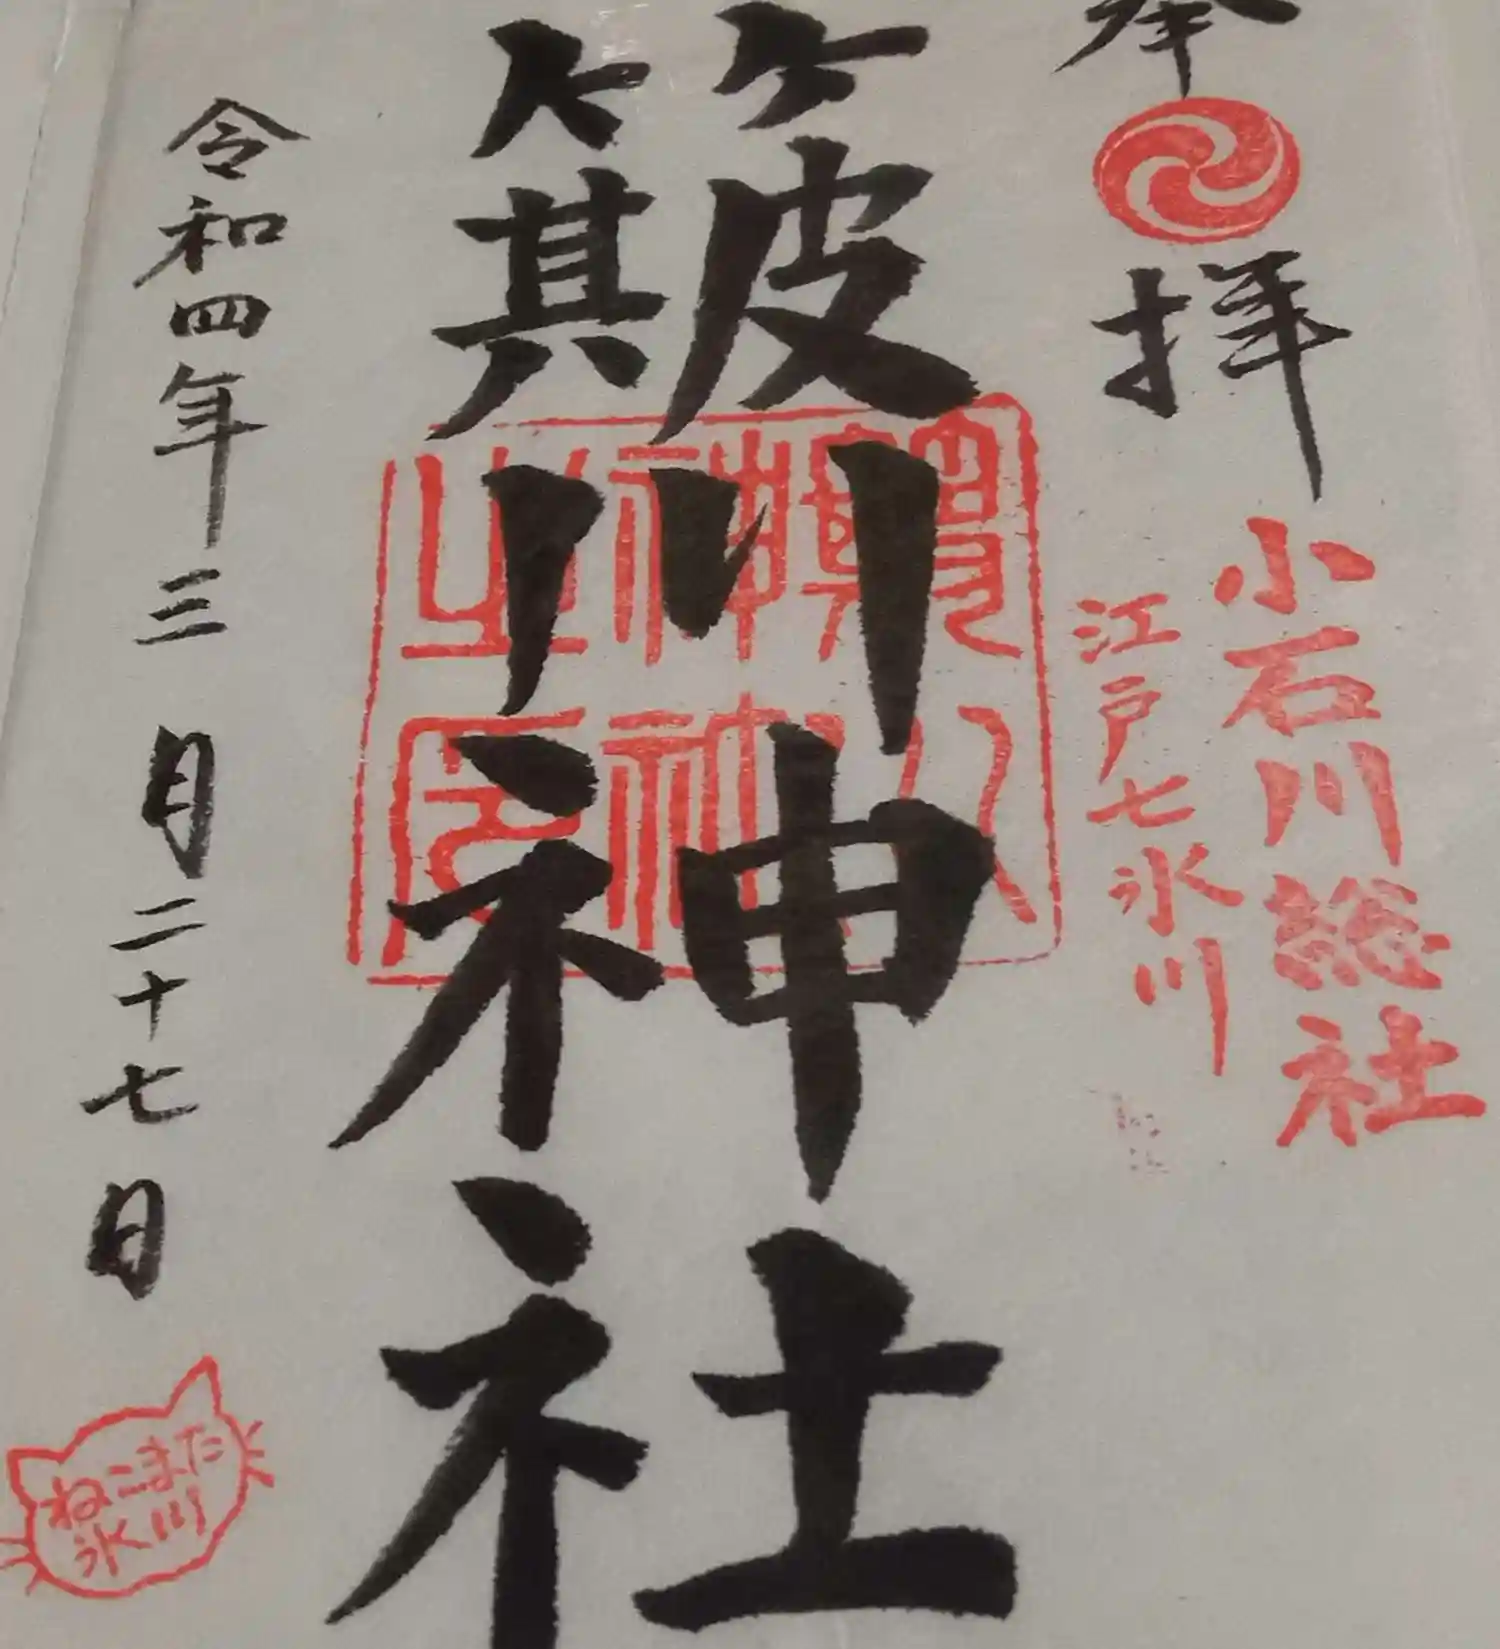 奉拝
小石川総社
江戸七氷川
簸川神社
令和四年三月二十七日
ねこまた
氷川